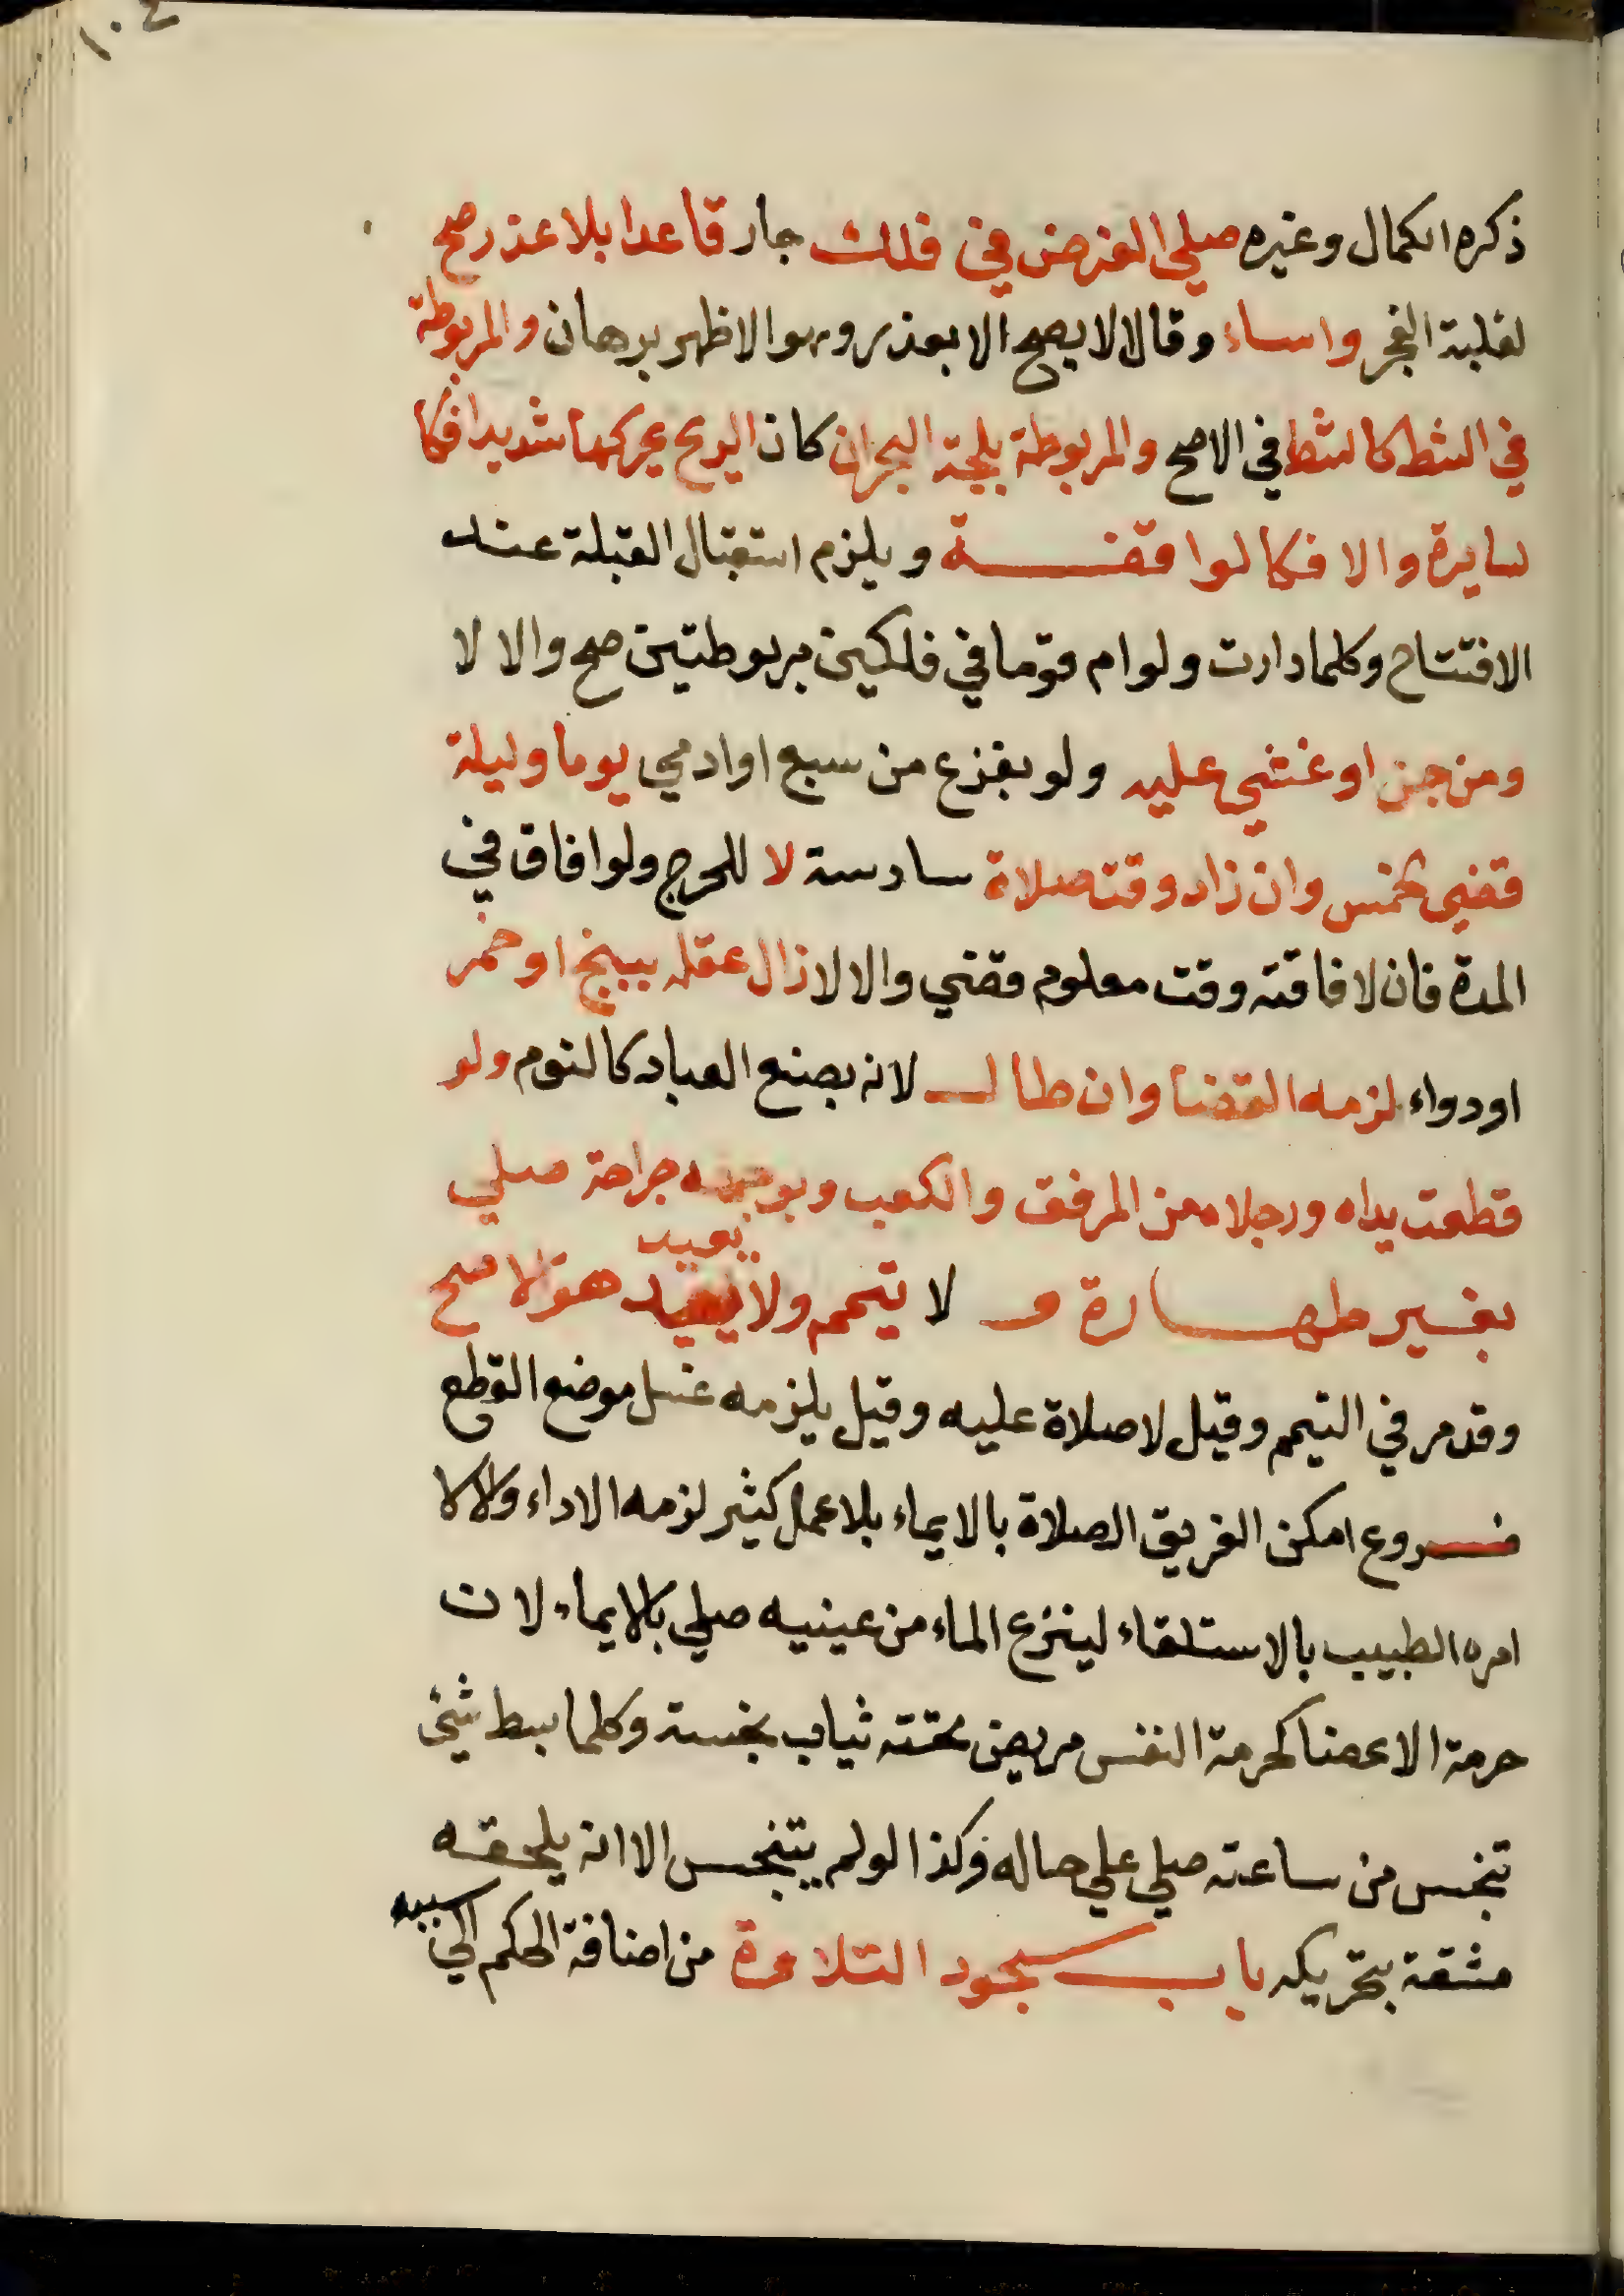 ١٠٤
ذكره الكمال وغيره صلي الفرض في فلك جار قاعدا بلا عذر صح
لغلبة العجز واساء وقالا لا يصح الا بعذر وهو الاظهر برهان والمربوطة
في الشط كالشط في الاصح والمربوطة بلجة البحر ان كان الريح يحركها شديدا فكا
لسايرة والا فكالواقفة ويلزم استقبال القبلة عند
الافتتاح وكلما دارت ولو ام قوما في فلكين مربوطتين صح والا لا
ومن جن او غشي عليه ولو بفزع من سبع او ادمي يوما وليلة
قضي الخمس وان زاد وقت صلاة سادسة لا للحرج ولو افاق في
المدة فان لافاقته وقت معلوم قضي والا لا زال عقله ببنج او خمر
او دواء لزمه القضا وان طال لانه بصنع العباد كالنوم ولو
قطعت يداه ورجلاه من المرفق والكعب وبوجهه جراحة صلي
يعيد
بغير طهارة و لا تيمم ولا يعيد هو الاصح
وقد مر في التيمم وقيل لا صلاة عليه وقيل يلزمه غسل موضع القطع
فروع امكن الغريق الصلاة بالايماء بلا عمل كثير لزمه الاداء والا لا
امره الطبيب بالاستلقاء لينزع الماء من عينيه صلي بالايماء لان
حرمة الاعضا كحرمة النفس مريض تحته ثياب نجسة وكلما بسط شيئ
تنجس من ساعته صلي علي حاله وكذا لو لم يتنجس الا انه يلحقه
مشقة بتحريكه باب سجود التلاوة من اضافة الحكم الي سببه